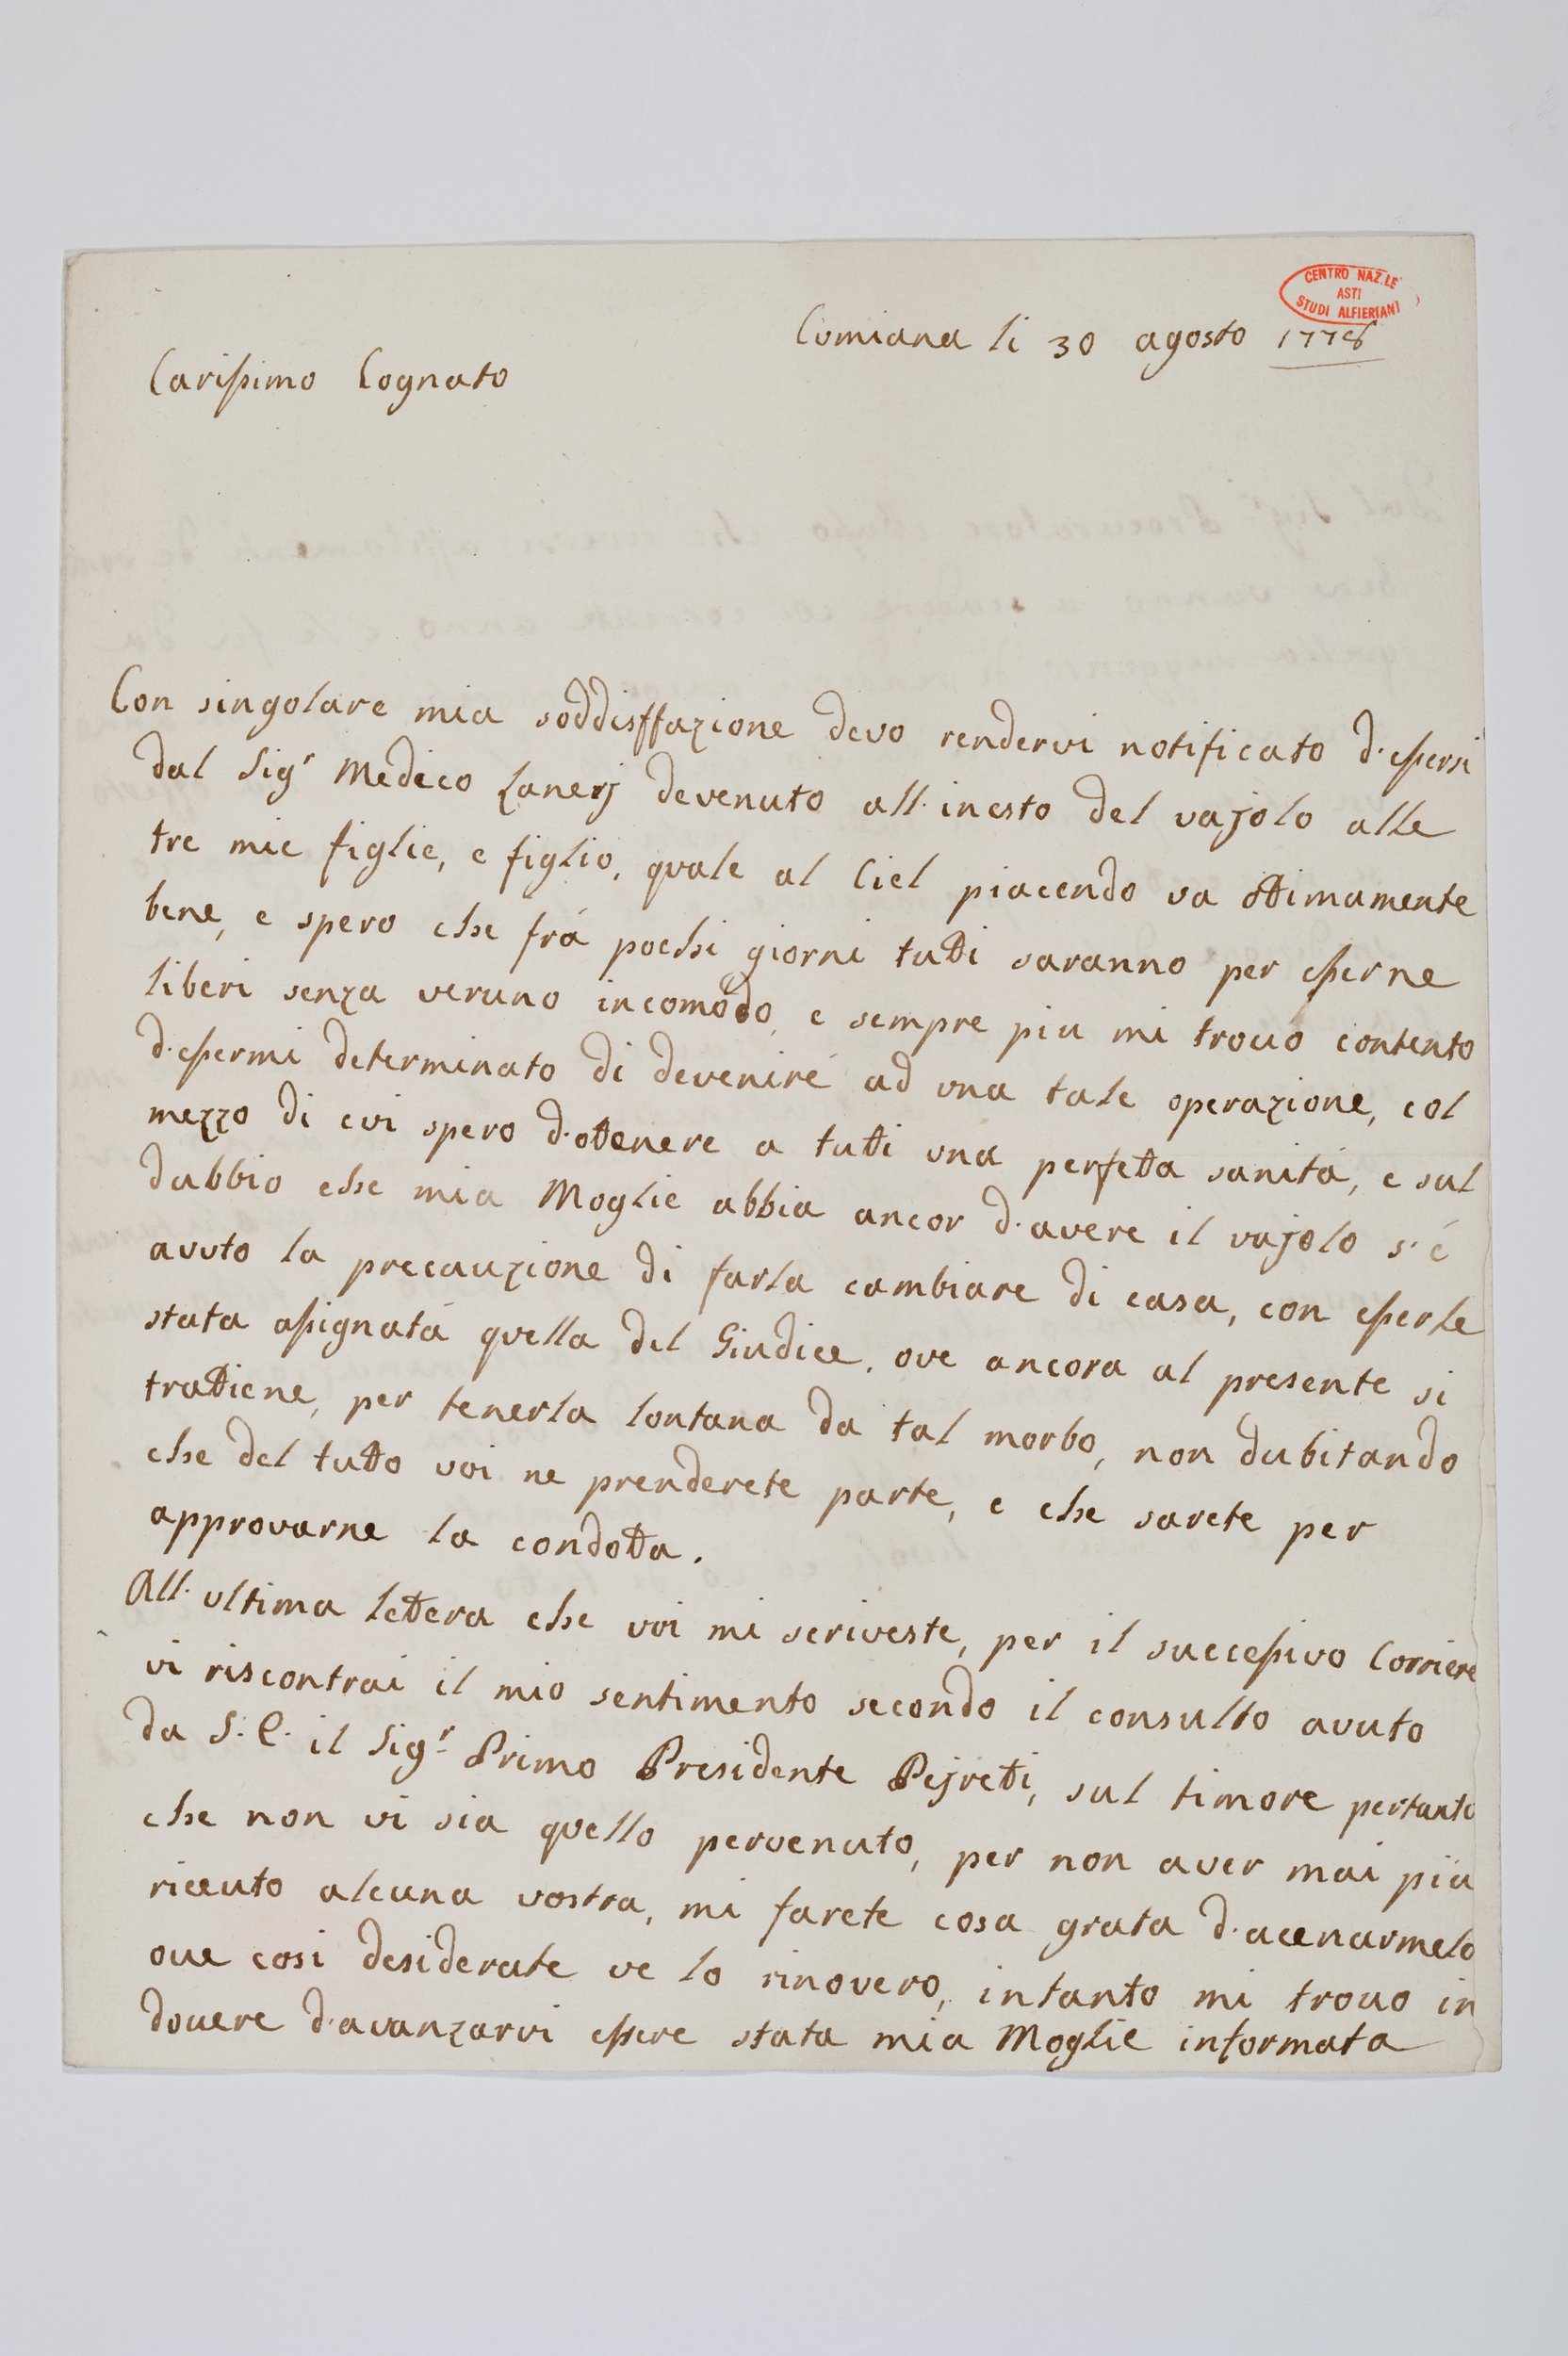 CENTRO NAZ.LE
ASTI
STUDI ALFIERIANI
Cumiana li 30 agosto 1778
Carissimo Cognato
Con singolare mia soddisffazione devo rendervi notificato d'essersi
dal Sigr Medico Zanerj devenuto all'inesto del vajolo alle
tre mie figlie, e figlio, quale al Ciel piacendo va ottimamente
bene, e spero che frá pochi giorni tutti saranno per esserne
liberi senza veruno incomodo, e sempre piu mi trovo contento
d'essermi determinato di devenire ad una tale operazione, col
mezzo di cui spero d'ottenere a tutti una perfetta sanitá, e sul
dubbio che mia Moglie abbia ancor d'avere il vajolo s'é
avuto la precauzione di farla cambiare di casa, con esserle
stata assignata quella del Giudice, ove ancora al presente si
trattiene, per tenerla lontana da tal morbo, non dubitando
che del tutto voi ne prenderete parte, e che sarete per
approvarne la condotta.
All'ultima lettera che voi mi scriveste, per il successivo Corriere
vi riscontrai il mio sentimento secondo il consulto avuto
da S. E. il Sigr Primo Presidente Pejretti, sul timore pertanto
che non vi sia quello pervenuto, per non aver mai piu
riceuto alcuna vostra, mi farete cosa grata d'acenarmelo
ove cosi desiderate ve lo rinovero, intanto mi trovo in
dovere d'avanzarvi essere stata mia Moglie informata